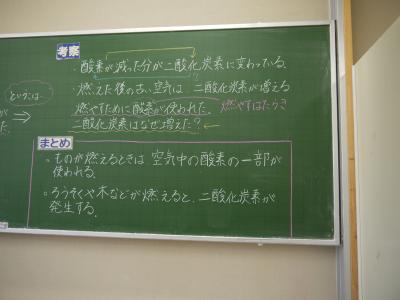 考察
・酸素が減った分が二酸化炭素に変わっている。
・燃えた後の古い空気は二酸化炭素が増える
燃やすために酸素が使われた。 燃やすはたらき
二酸化炭素はなぜ増えた?
ということは
まとめ
・ものが燃えるときは空気中の酸素の一部が
使われる。
・ろうそくや木などが燃えると、二酸化炭素が
発生する。